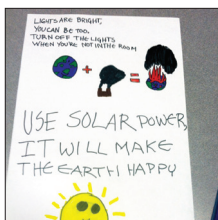 LIGHTS ARE BRIGHT,
YOU CAN BE TOO.
TURN OFF THE LIGHTS
WHEN YOU'RE NOT IN THE ROOM
+ =
USE SOLAR POWER,
IT WILL MAKE
THE EARTH HAPPY